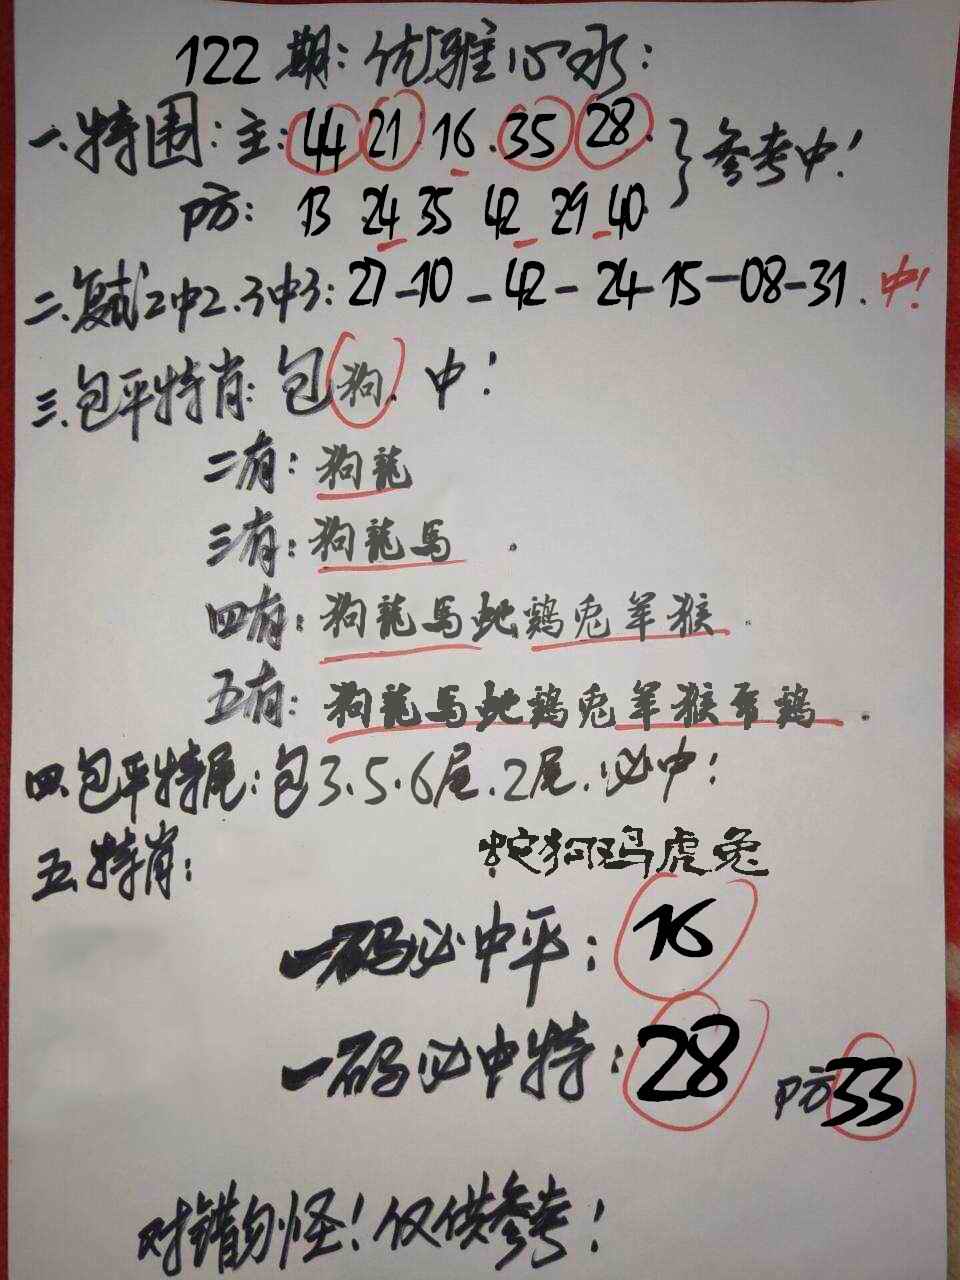 122期:优雅心水:
一.特围:主:44 21 16.35 28.
防: 13 24 35 42 29 40 }参考中!
二.复式2中2.3中3:27-10-42-24-15-08-31.中!
三.包平特肖:包狗.中!
二有:狗龍
三有:狗龍馬.
四有:狗龍馬蛇鷄兎羊猴.
五有:狗龍馬蛇鷄兎羊猴 鷄.
四.包平特尾:包3.5.6尾.2尾.必中!
五.特肖:
蛇狗鸡虎兔
一码必中平:16
一码必中特:28 防33
对错勿怪!仅供参考!